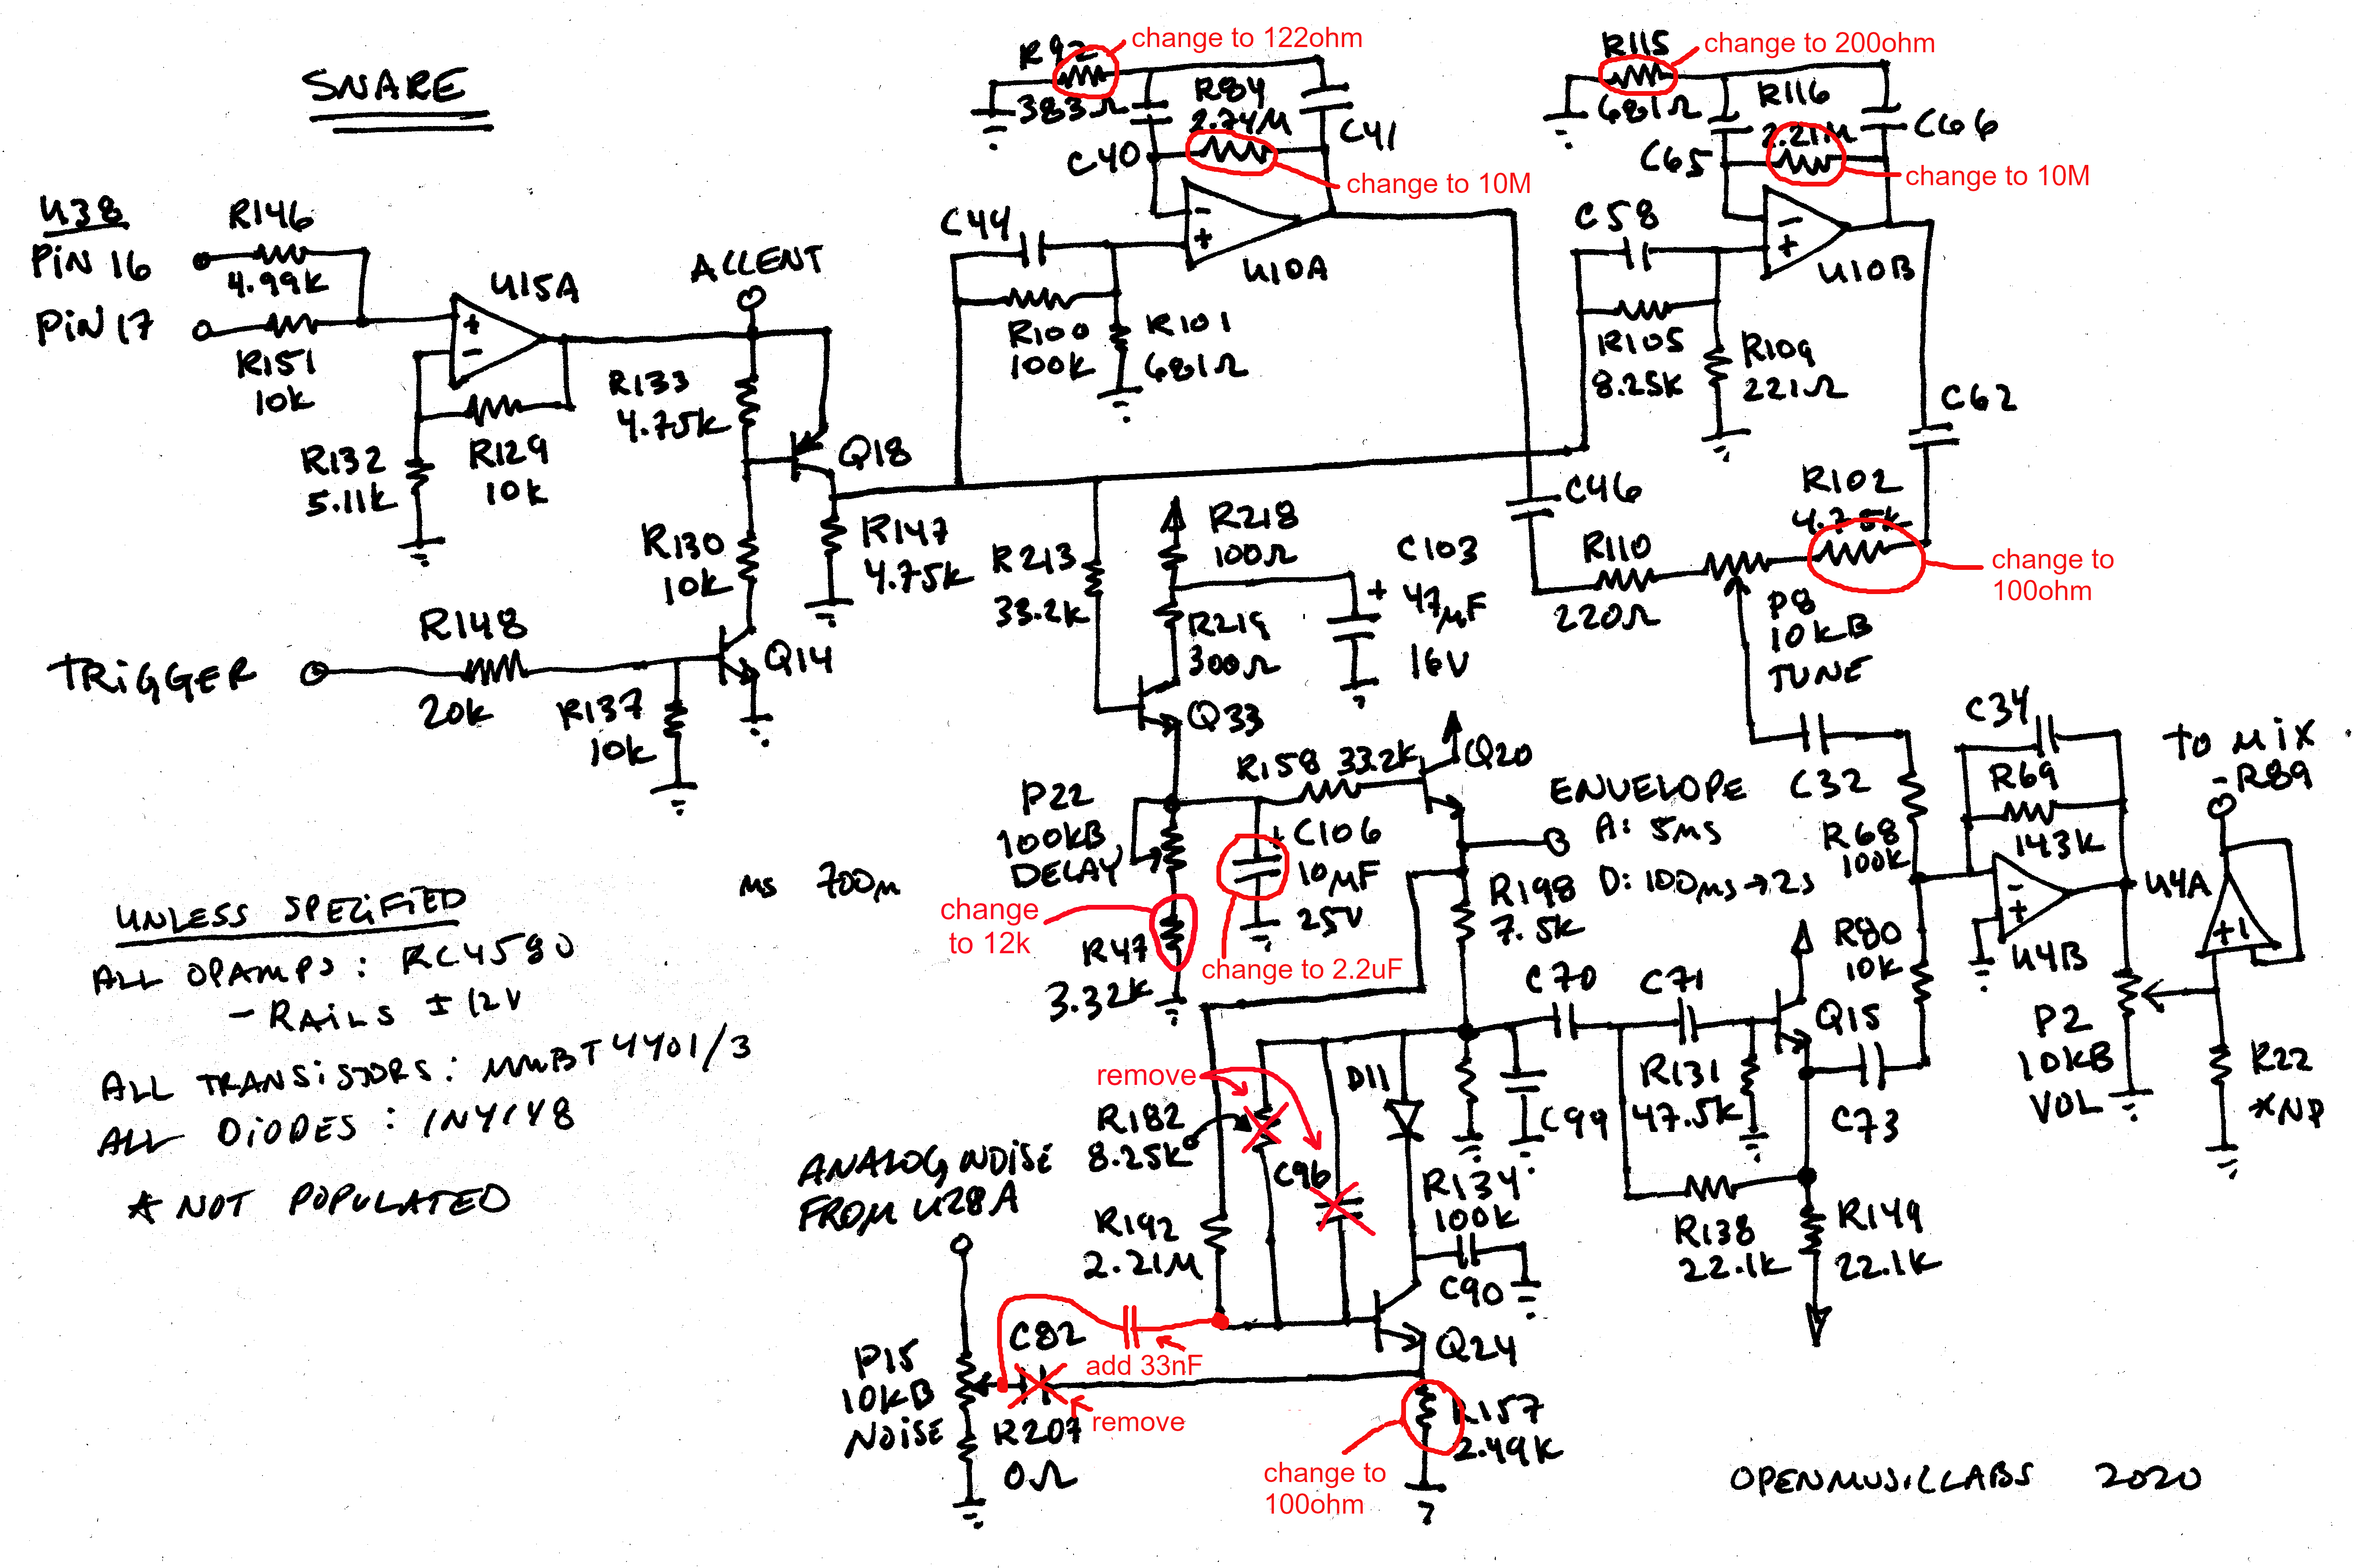 SNARE
U38
PiN 16
PiN 17
R146
4.99K
R151
10K
U15A
R132
5.11K
R129
10K
ACCENT
R133
4.75K
Q18
R130
10K
R147
4.75K
TRiGGER
R148
20K
R137
10K
Q14
R92
383Ω
change to 122ohm
R84
2.74M
C40
C41
change to 10M
C44
U10A
R100
100K
R101
681Ω
R115
681Ω
change to 200ohm
R116
2.21M
C65
C66
change to 10M
C58
U10B
R105
8.25K
R109
221Ω
C62
C46
R102
4.75K
change to
100ohm
R110
220Ω
P8
10KB
TUNE
R213
33.2K
R218
100Ω
C103
+
47µF
16V
R219
300Ω
Q33
R158 33.2K
Q20
P22
100KB
DELAY
+
C106
10µF
25V
change to 2.2uF
change
to 12k
R47
3.32K
ENVELOPE
A: 5MS
D: 100MS → 2S
R198
7.5K
MS 700M
C32
R68
100K
C34
R69
143K
TO MIX
-R89
U4A
+1
U4B
R80
10K
P2
10KB
VOL
R22
*NP
C70
C71
Q15
R131
47.5K
C73
C99
R138
22.1K
R149
22.1K
D11
R134
100K
C90
remove
R182
8.25K
C96
R192
2.21M
Q24
ANALOG NOiSE
FROM U28A
P15
10KB
NOiSE
C82
add 33nF
remove
R207
0Ω
R157
2.49K
change to
100ohm
UNLESS SPECiFiED
ALL OPAMPS: RC4580
- RAiLS ±12V
ALL TRANSiSTORS: MMBT4401/3
ALL DiODES: 1N4148
* NOT POPULATED
OPENMUSICLABS 2020